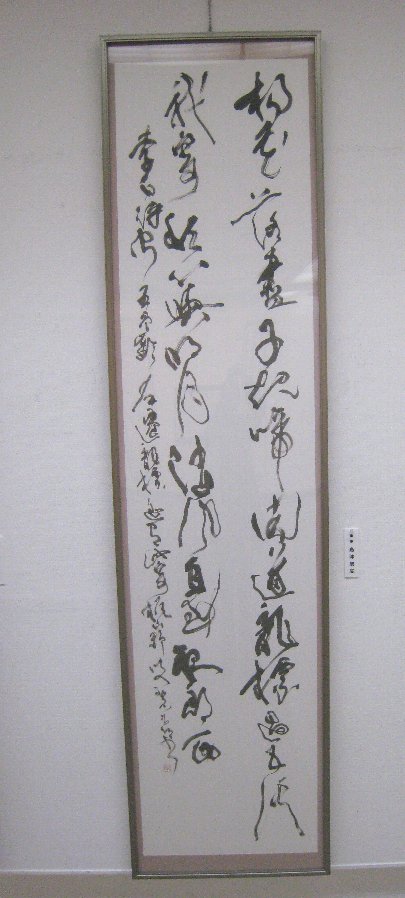 楊花落盡子規啼聞道龍標過五溪
我寄愁心與明月隨風直到夜郎西
李白詩聞王昌齡左遷龍標遥有此寄